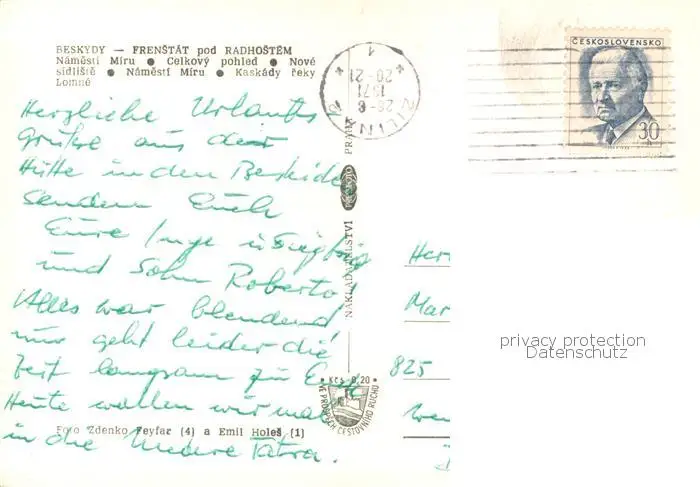 BESKYDY — FRENŠTÁT pod RADHOŠTĚM
Náměstí Míru ● Celkový pohled ● Nové
sídliště ● Náměstí Míru ● Kaskády řeky
Lomné
ČESKOSLOVENSKO
30
ŽILINA
1
28-6
1971
20-21
Herzliche Urlaubs
grüße aus der
Hütte in den Beskiden
senden Euch
Eure Inge u
und Sohn Roberto
Alles war blendend
nur geht leider die
Zeit langsam zu E
Heute wollen wir mal
in die Tatra.
NAKLADATELSTVÍ
PRAHA
Kčs 0,20
VE PROSPĚCH CESTOVNÍHO RUCHU
Foto Zdenko Feyfar (4) a Emil Holeš (1)
Her
Mar
825
privacy protection
Datenschutz